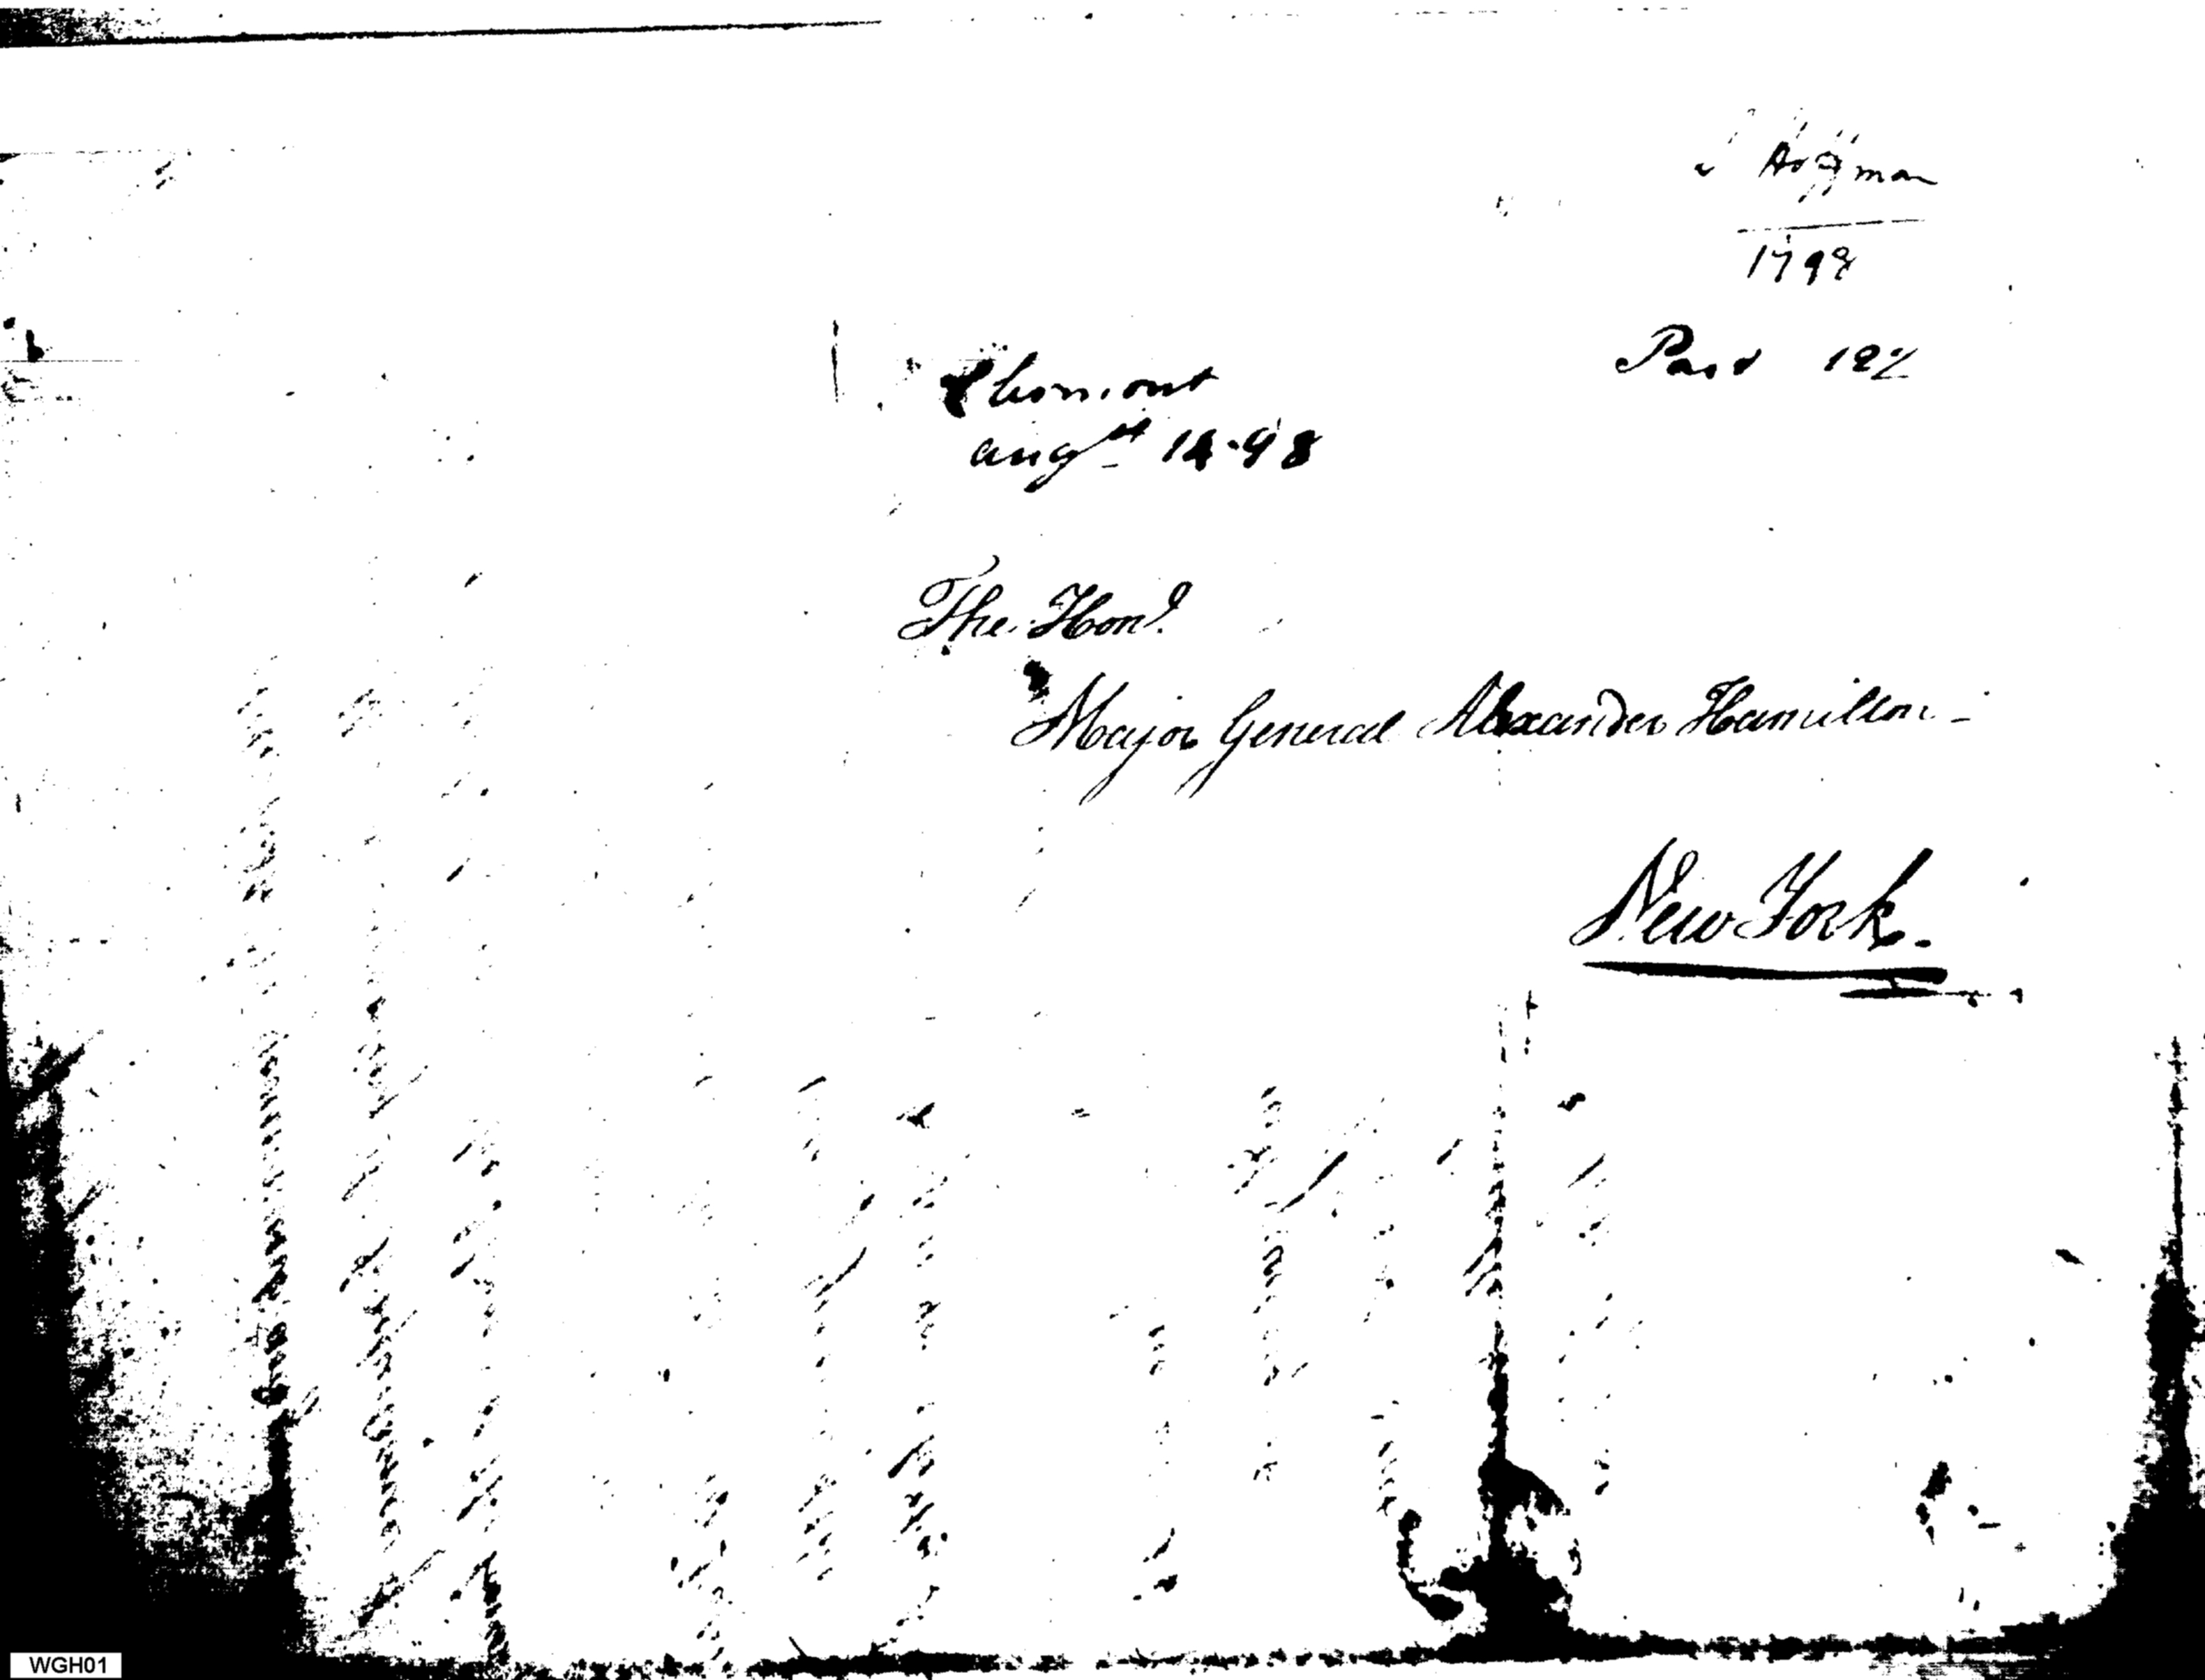 Hoffman
1798
Paid 12½
augst 14-98
The Honl.
Major General Alexander Hamilton -
New York.
WGH01